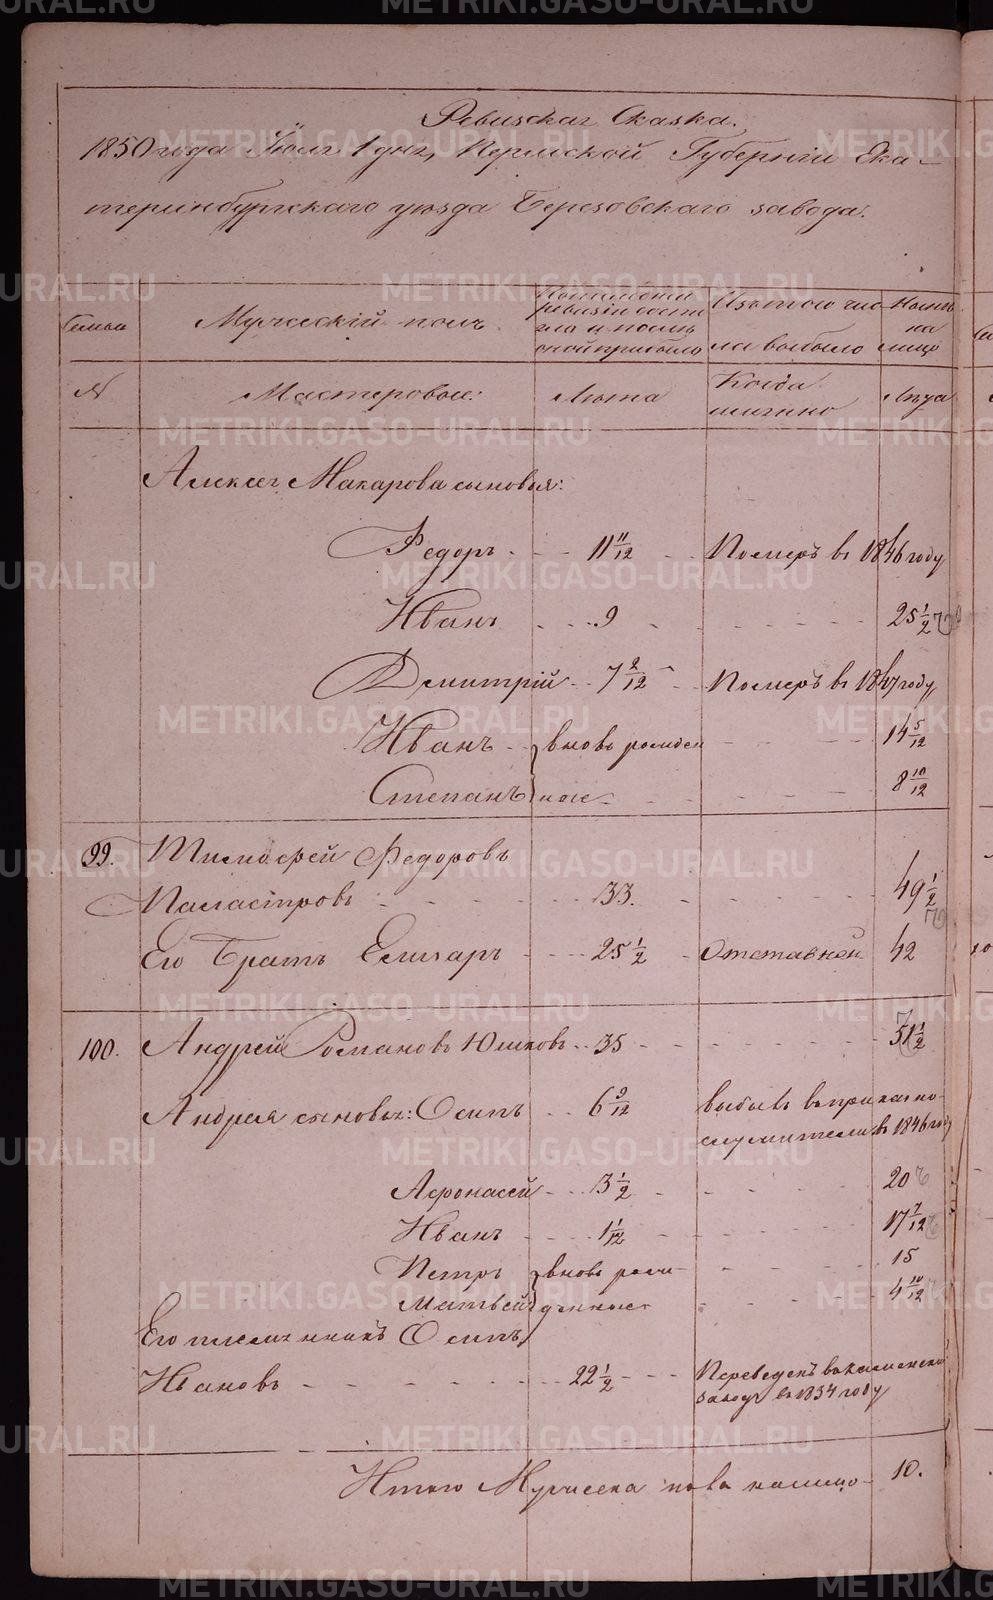 Ревизская Сказка.
1850 года Іюля 1 дня, Пермской Губерніи Ека-
теринбургскаго уѣзда Березовскаго завода.
Семьи
Мужескій полъ.
По послѣдней
ревизіи состо
яло и послѣ
оной прибыло
Изъ того чис
ла выбыло
Нынѣ
на
лицо
№
Мастеровые:
Лѣта
Когда
именно
Лѣта
Алексѣя Макарова сыновья:
Федоръ - - - 11 11/12 - - Померъ въ 1846 году
Иванъ - - - 9 - - - - - - 25 1/2
Дмитрій - - 7 2/12 - - Померъ въ 1847 году
Иванъ - - } вновь рожден - - - - 14 5/12
Степанъ } ные - - - - - - 8 10/12
99. Тимофей Федоровъ
- - - - - 33. - - - - - - 49 1/2
Его Братъ Елизаръ - - - 25 1/2 - Отставной 42
100. Андрей Романовъ Юшковъ - - 35 - - - - - - 51 1/2
Андрея сыновья: Осипъ - - 6 9/12 выбылъ въ приказно-
служители въ 1846 году
Афонасей - - - 3 1/2 - - - - - 20
Иванъ - - - 1 1/12 - - - - - 17 7/12
Петръ } вновь рож- - - - - 15
Матвей } денные - - - - - 4 10/12
Его племянникъ Осипъ
Ивановъ - - - - - - - 22 1/2 - - - Переведенъ въ Каменской
заводъ въ 1834 году
Итого Мужеска пола налицо - 10.
METRIKI.GASO-URAL.RU